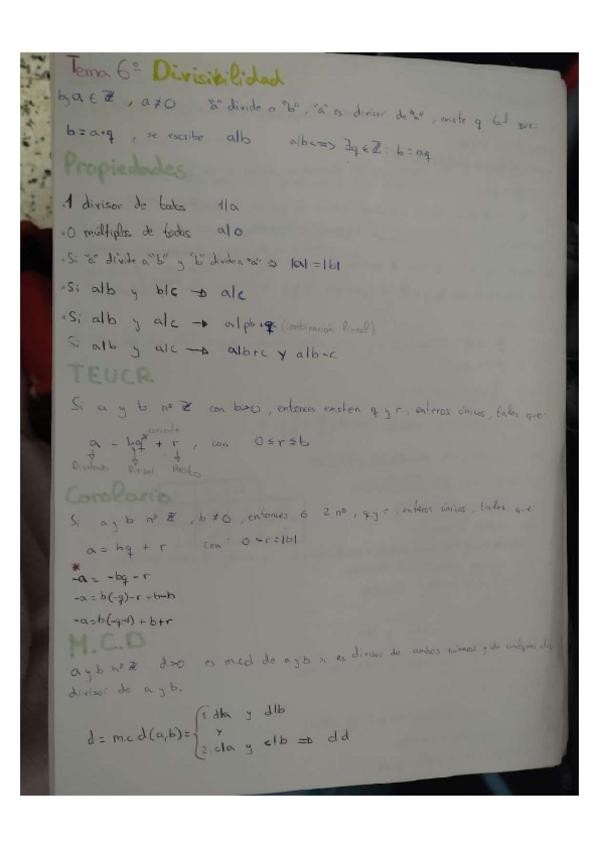 Tema 6º Divisibilidad
b, a ∈ ℤ, a ≠ 0 "a" divide a "b", "a" es divisor de "b", existe q tal que:
b = a·q, se escribe a|b a|b <=> ∃q ∈ ℤ : b = aq
Propiedades
·1 divisor de todos 1|a
·0 múltiplos de todos a|0
·Si "a" divide a "b" y "b" divide a "a" => |a| = |b|
·Si a|b y b|c → a|c
·Si a|b y a|c → a|pb+ (combinación lineal)
Si a|b y a|c → a|b+c y a|b-c
TEUCR
Si a y b nº ℤ con b>0, entonces existen q y r, enteros únicos, tales que:
cociente
a = bq + r, con 0 ≤ r ≤ b
Dividendo Divisor Resto
Corolario
Si a y b nº ℤ, b ≠ 0, entonces 2 nº, q y r enteros únicos, tales que:
a = bq + r con
*
-a = -bq - r
-a = b(-q)-r+b-b
-a = b(-q-1)+b+r
M.C.D
a y b nº ℤ d>0 es mcd de a y b si es divisor de ambos números y de cualquier
divisor de a y b.
1. d|a y d|b
d = m.c.d(a,b) = { y
2. c|a y c|b => d d